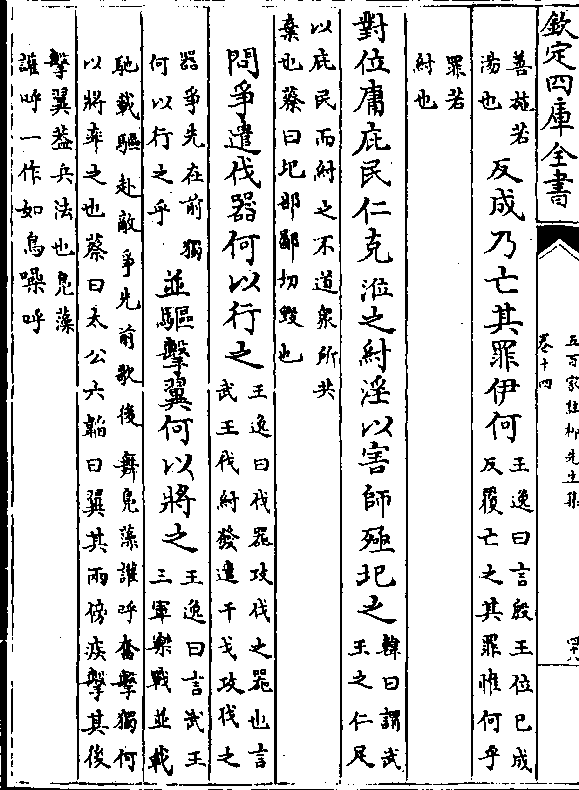 欽定四庫全書
五百家註柳先生集
卷十四
善施若
湯也
反成乃亡其罪伊何
王逸曰言殷王位已成
反覆亡之其罪惟何乎
罪若
紂也
對位庸庇民仁克涖之紂淫以害師殛圮之
韓曰謂武
王之仁足
以庇民而紂之不道衆所共
棄也蔡曰圮部鄙切毀也
問爭遣伐器何以行之
王逸曰伐器攻伐之器也言
武王伐紂發遣干戈攻伐之
器爭先在前獨
何以行之乎
並驅擊翼何以將之
王逸曰言武王
三軍樂戰並載
馳載驅赴敵爭先前歌後舞鳧藻讙呼奮擊獨何
以將率之也蔡曰太公六韜曰翼其兩傍疾擊其後
擊翼蓋兵法也鳧藻
讙呼一作如鳥噪呼